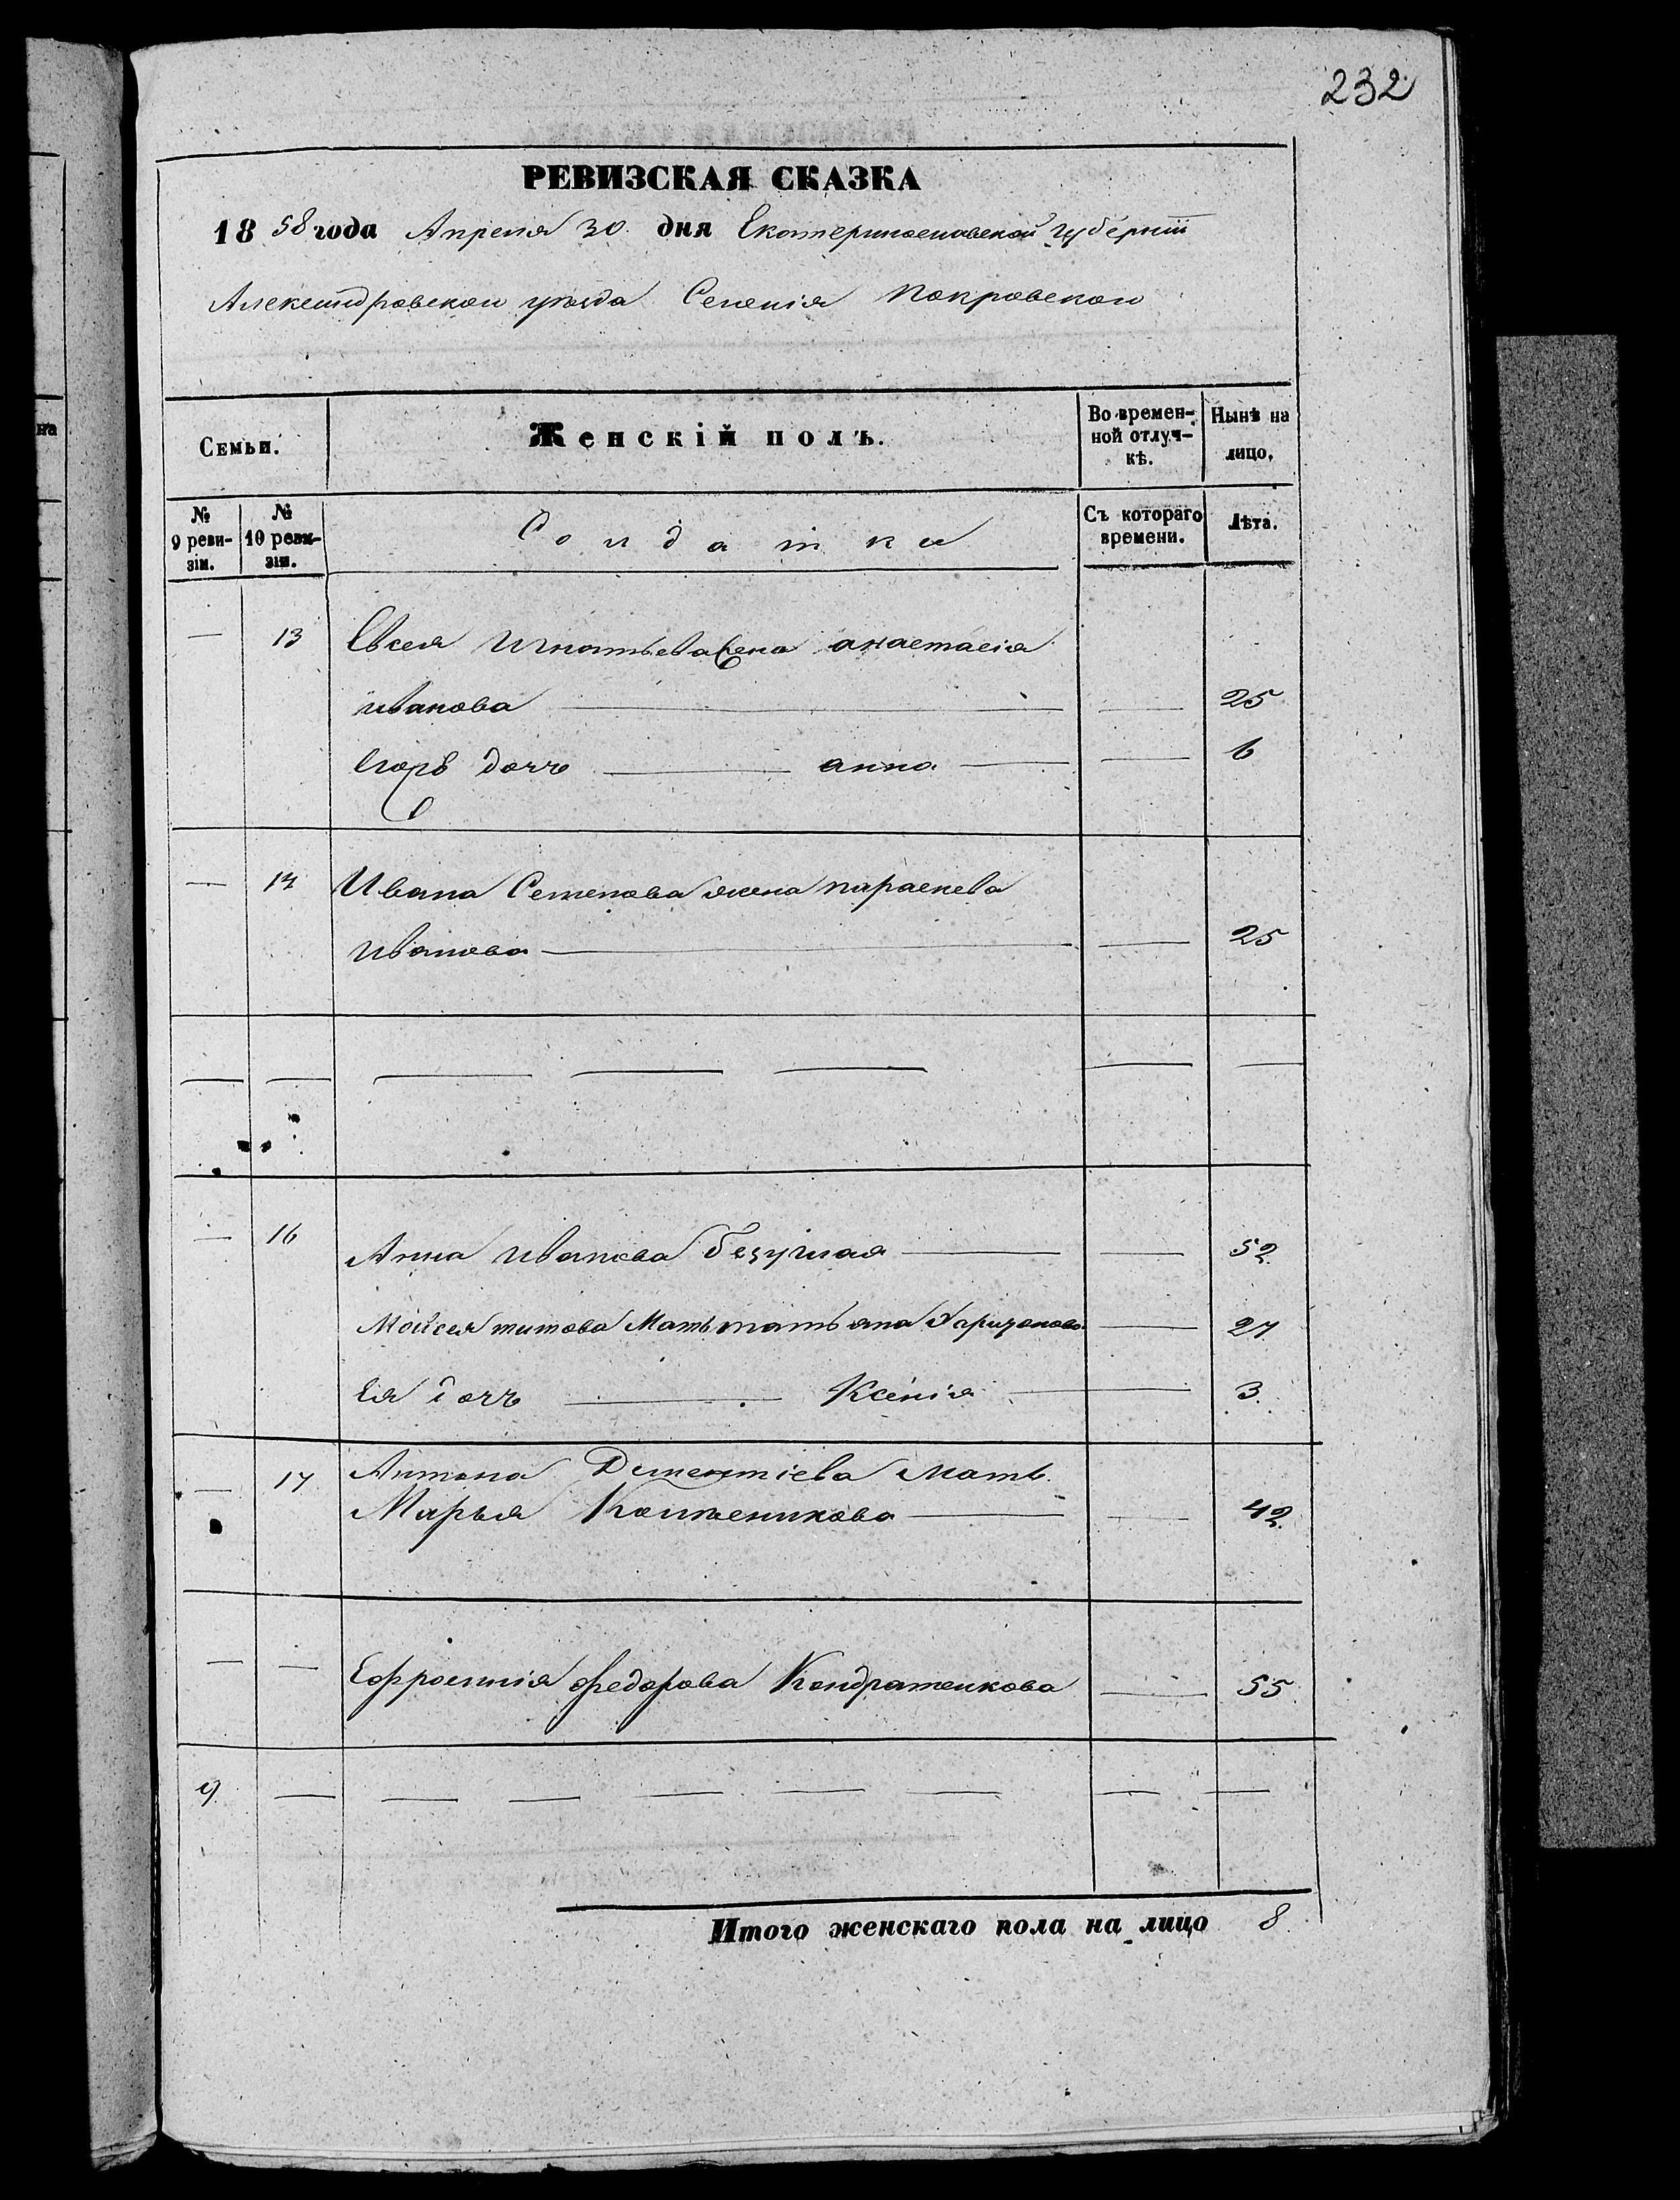 232
РЕВИЗСКАЯ СКАЗКА
1858 года Апреля 30 дня Екатеринославской губерніи
Александровскои уѣзда Селенія Покровскои
Семьи. Женскій полъ. Во времен-ной отлуч-кѣ. Нынѣ на лицо.
№ 9 реви-зіи. № 10 реви-зіи. Солдатки Съ котораго времени. Лѣта.
— 13 Евсея Игнатьева жена анастасія
иванова — — 25
дочь — анна — — 6
— 14 Ивана Семенова жена параскева
Иванова — — 25
— — — — — — —
— 16 Анна Иванова — — 52
Моисея титова Мать татьяна Харитонова — 27
Ея дочь — Ксенія — — 3.
— 17 Антона Дементіева мать
Марья — — 42.
— — Ефросинія федорова Кондратенкова — 55
9 — — — — — — — —
Итого женскаго пола на лицо 8.
на